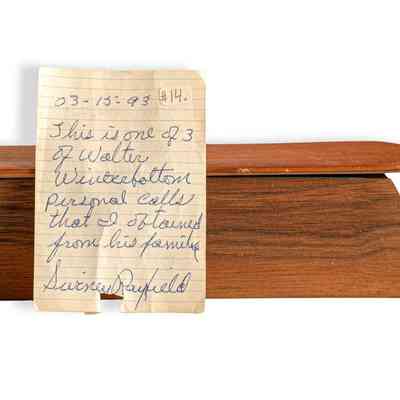 03-15-93 #14.
This is one of 3
of Walter
Winterbottom
personal calls
that I obtained
from his family
Rayfield